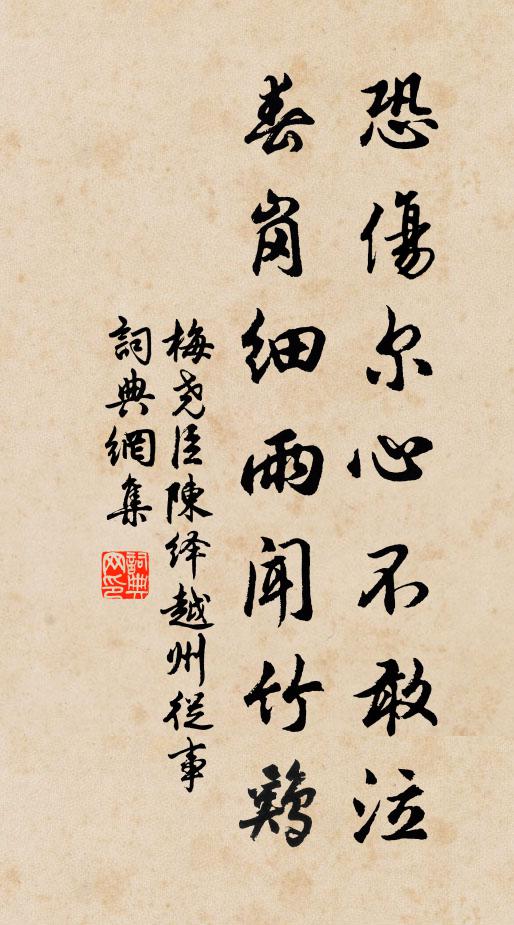 恐傷尔心不敢泣
春岗细雨闻竹鷄
梅尧臣陳绎越州從事
詞典網集
詞典网印